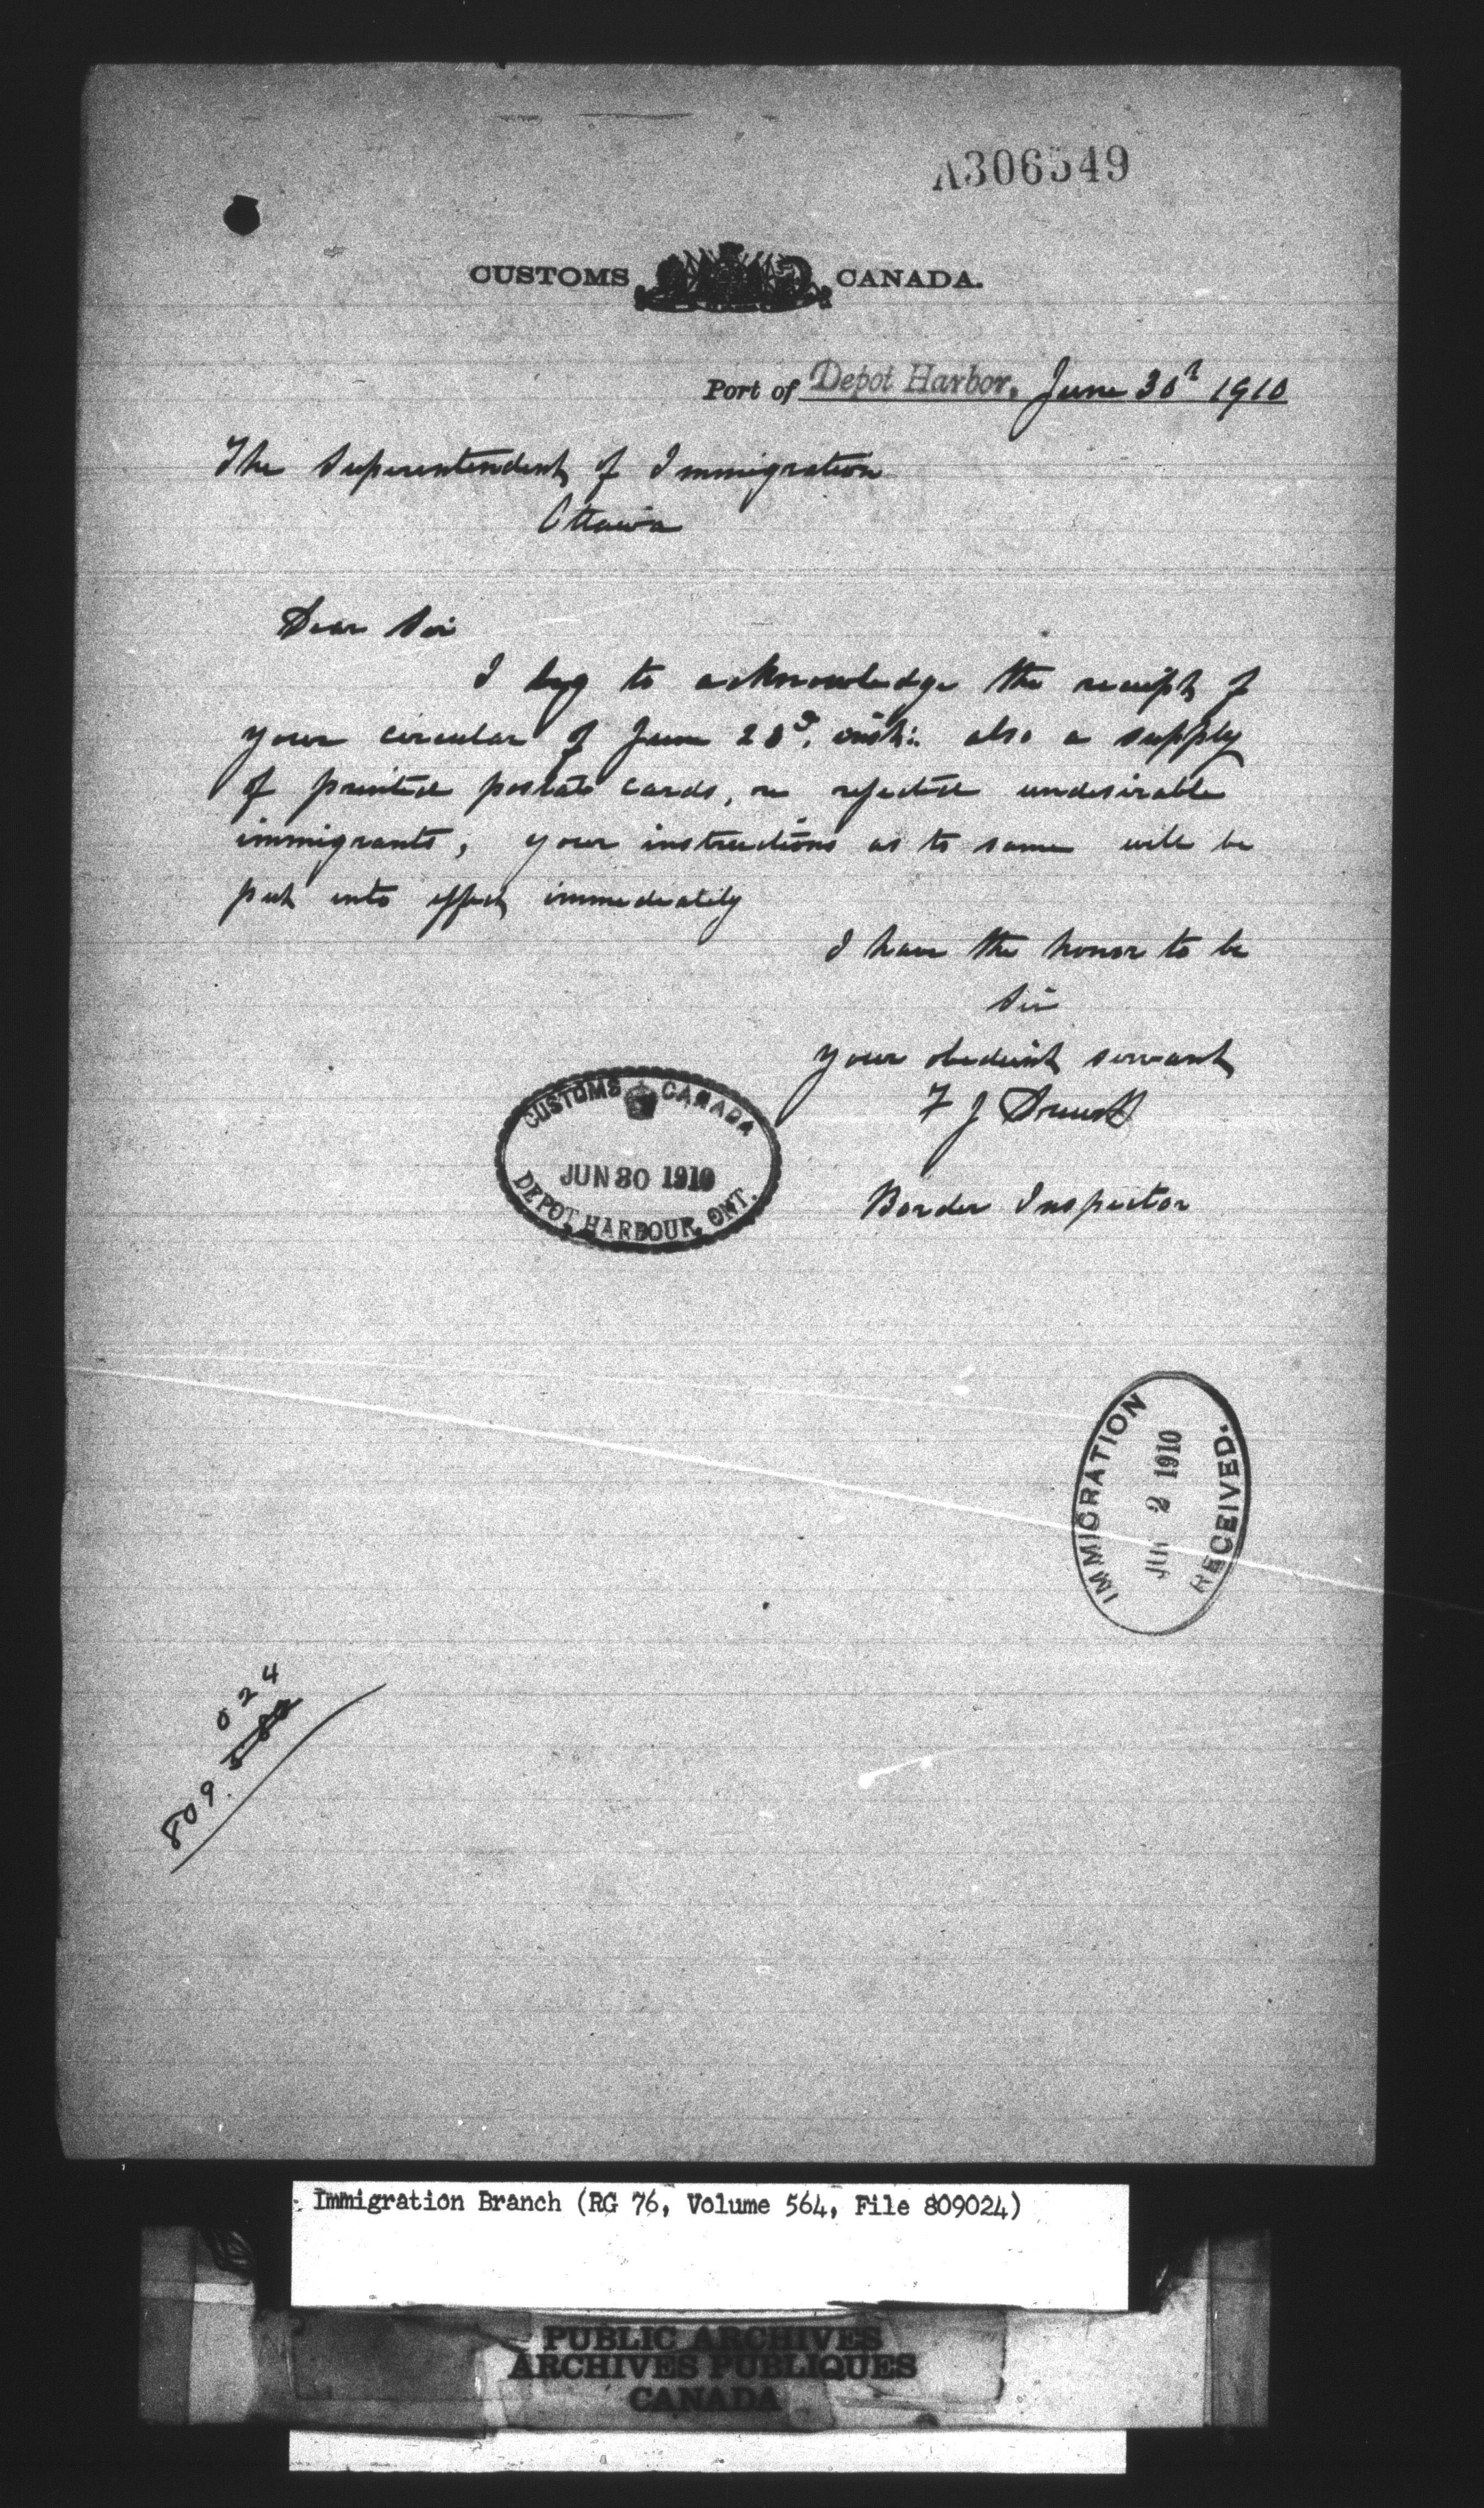 A306549
CUSTOMS CANADA.
Port of Depot Harbor, June 30th 1910
The Superintendent of Immigration
Ottawa
Dear Sir
I beg to acknowledge the receipt of
your circular of June 23d, inst: also a supply
of printed postal cards, re rejected undesirable
immigrants, your instructions as to same will be
put into effect immediately
I have the honor to be
Sir
your obedient servant
F J
Border Inspector
CUSTOMS CANADA
JUN 30 1910
DEPOT HARBOUR, ONT.
IMMIGRATION
2 1910
RECEIVED.
024
809.
Immigration Branch (RG 76, Volume 564, File 809024)
PUBLIC ARCHIVES
ARCHIVES PUBLIQUES
CANADA